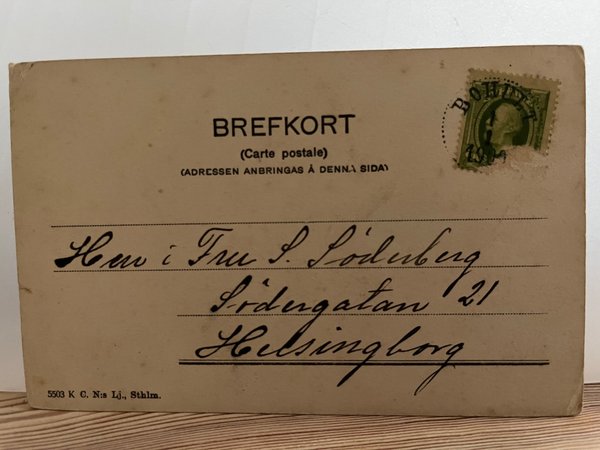 BREFKORT
(Carte postale)
(ADRESSEN ANBRINGAS Å DENNA SIDA)
Söderberg
Södergatan 21
Helsingborg
5503 K C. N:s Lj., Sthlm.